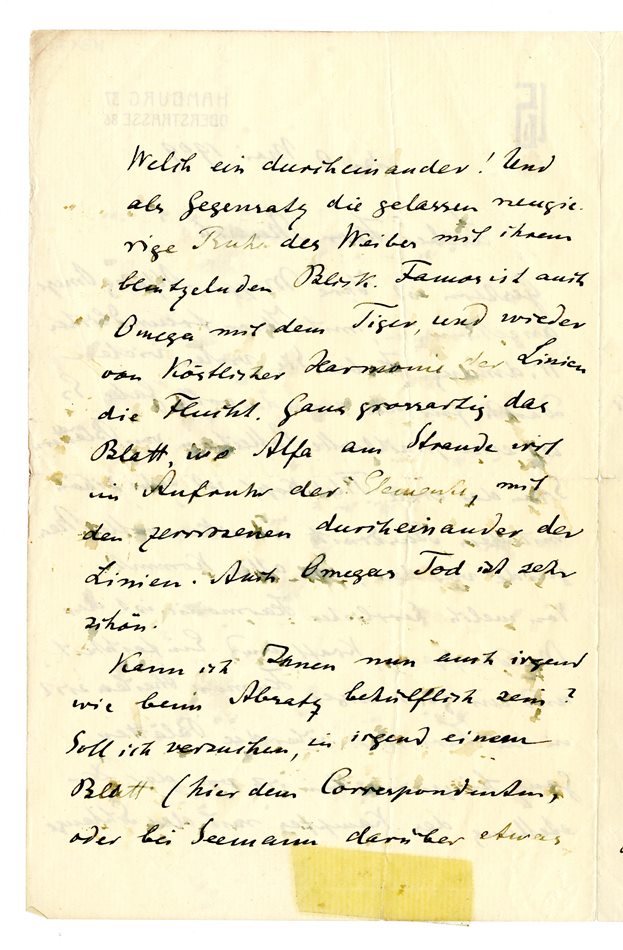 Welch ein durcheinander! Und
als Gegensatz die gelassen neugie-
rige Ruhe des Weibes mit ihrem
blinzelnden Blick. Famos ist auch
Omega mit dem Tiger, und wieder
von köstlicher Harmonie der Linien
die Flucht. Ganz grossartig das
Blatt, wo Alfa am Strande rast
im Aufruhr der Elemente, mit
den zerrissenen durcheinander der
Linien. Auch Omegas Tod ist sehr
schön.
Kann ich Ihnen nun auch irgend
wie beim Absatz behülflich sein?
Soll ich versuchen, in irgend einem
Blatt (hier dem Correspondenten,
oder bei Seemann darüber etwas
HAMBURG 37
OBERSTRASSE 86